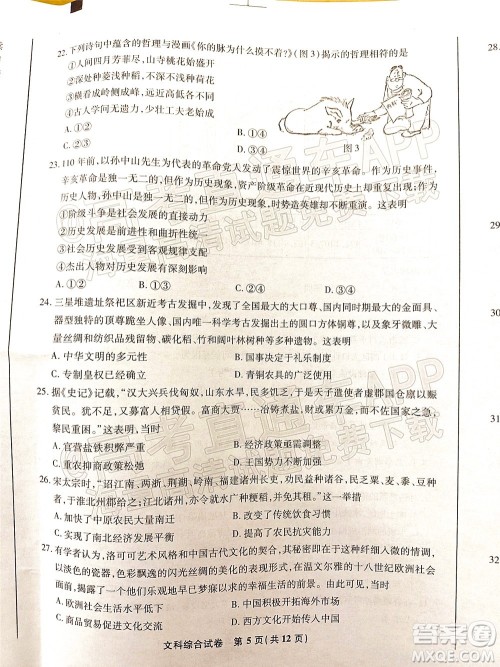 22. 下列诗句中蕴含的哲理与漫画《你的脉为什么摸不着?》(图3)揭示的哲理相符的是
①人间四月芳菲尽，山寺桃花始盛开
②近水楼台先得月，向阳花木易为春
③横看成岭侧成峰，远近高低各不同
④古人学问无遗力，少壮工夫老始成
A. ①②
B. ①④
C. ②③
D. ③④
图3
23. 110年前，以孙中山先生为代表的革命党人发动了震惊世界的辛亥革命。作为历史事件，
辛亥革命是独一无二的，但作为历史现象，资产阶级革命在其他国家也发生过；作为历
史人物，孙中山是独一无二的，但作为历史现象，时势造英雄却不断重演。这表明
①阶级斗争是社会发展的直接动力
②历史发展是前进性与曲折性的统一
③社会历史发展受到客观规律支配
④杰出人物对历史发展有重大影响
A. ①②
B. ①③
C. ②④
D. ③④
24. 三星堆遗址祭祀区新近考古发掘中，发现了全国最大的大口尊，同时期最大的金面具、
器型独特的顶尊跪坐人像，以及与中原同类器物相似的圆口方体铜尊，以及象牙微雕、
大量丝绸制品残留物，碳化稻、竹和阔叶树材残存等。这些发掘表明
A. 中华文明的多元一体
B. 夏朝的世袭与礼乐制度
C. 专制皇权已经确立
D. 青铜农具的广泛使用
25. 据《史记》记载，“汉大兴兵伐匈奴，山东水旱，民多饥乏，于是天子遣使虚郡国仓廪以赈贫
民。犹不足，又募豪富人相假贷。富商大贾……冶铸煮盐，财或累万金，而不佐国家之急，
黎民重困。”这表明当时
A. 官营盐铁积弊严重
B. 经济政策亟需调整
C. 重农抑商政策松弛
D. 王国势力影响安定
26. 宋太宗时，“诏江南、两浙、荆湖、岭南、福建诸州长吏，劝民益种诸谷，民乏粟、麦、黍、豆种
者，于淮北州郡给之；江北诸州，亦令就水广种粳稻，并免其租。”这一举措
A. 加快了中原农民大量南迁
B. 改变了传统饮食习惯
C. 促进了南北作物品种交流
D. 提高了农民抗灾能力
27. 有学者认为，洛可可艺术风格和中国古代文化的契合，其秘密即在于这种纤细入微的情调，
以及淡色的瓷器，色彩飘逸的闪光丝绸的表现形式之中，在温文尔雅的十八世纪欧洲社会
之前，揭示了一个他们乐观地早已梦寐以求的幸福生活的前景。这表明
A. 欧洲社会的发展受益于中国文化
B. 中国积极开拓海外市场
C. 商品贸易促进了文化交流
文科综合试卷 第5页(共12页)